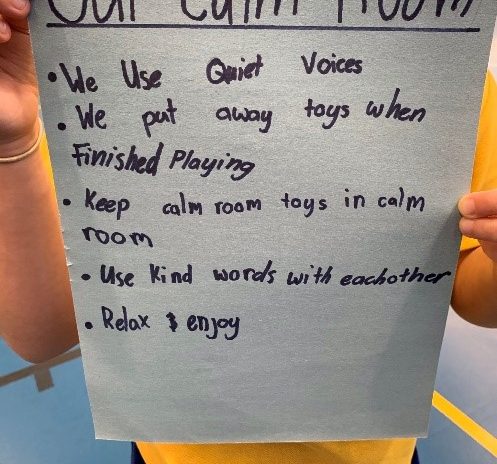 Our Calm Room
• We Use Quiet Voices
• We put away toys when
Finished Playing
• Keep calm room toys in calm
room
• Use Kind words with eachother
• Relax & enjoy